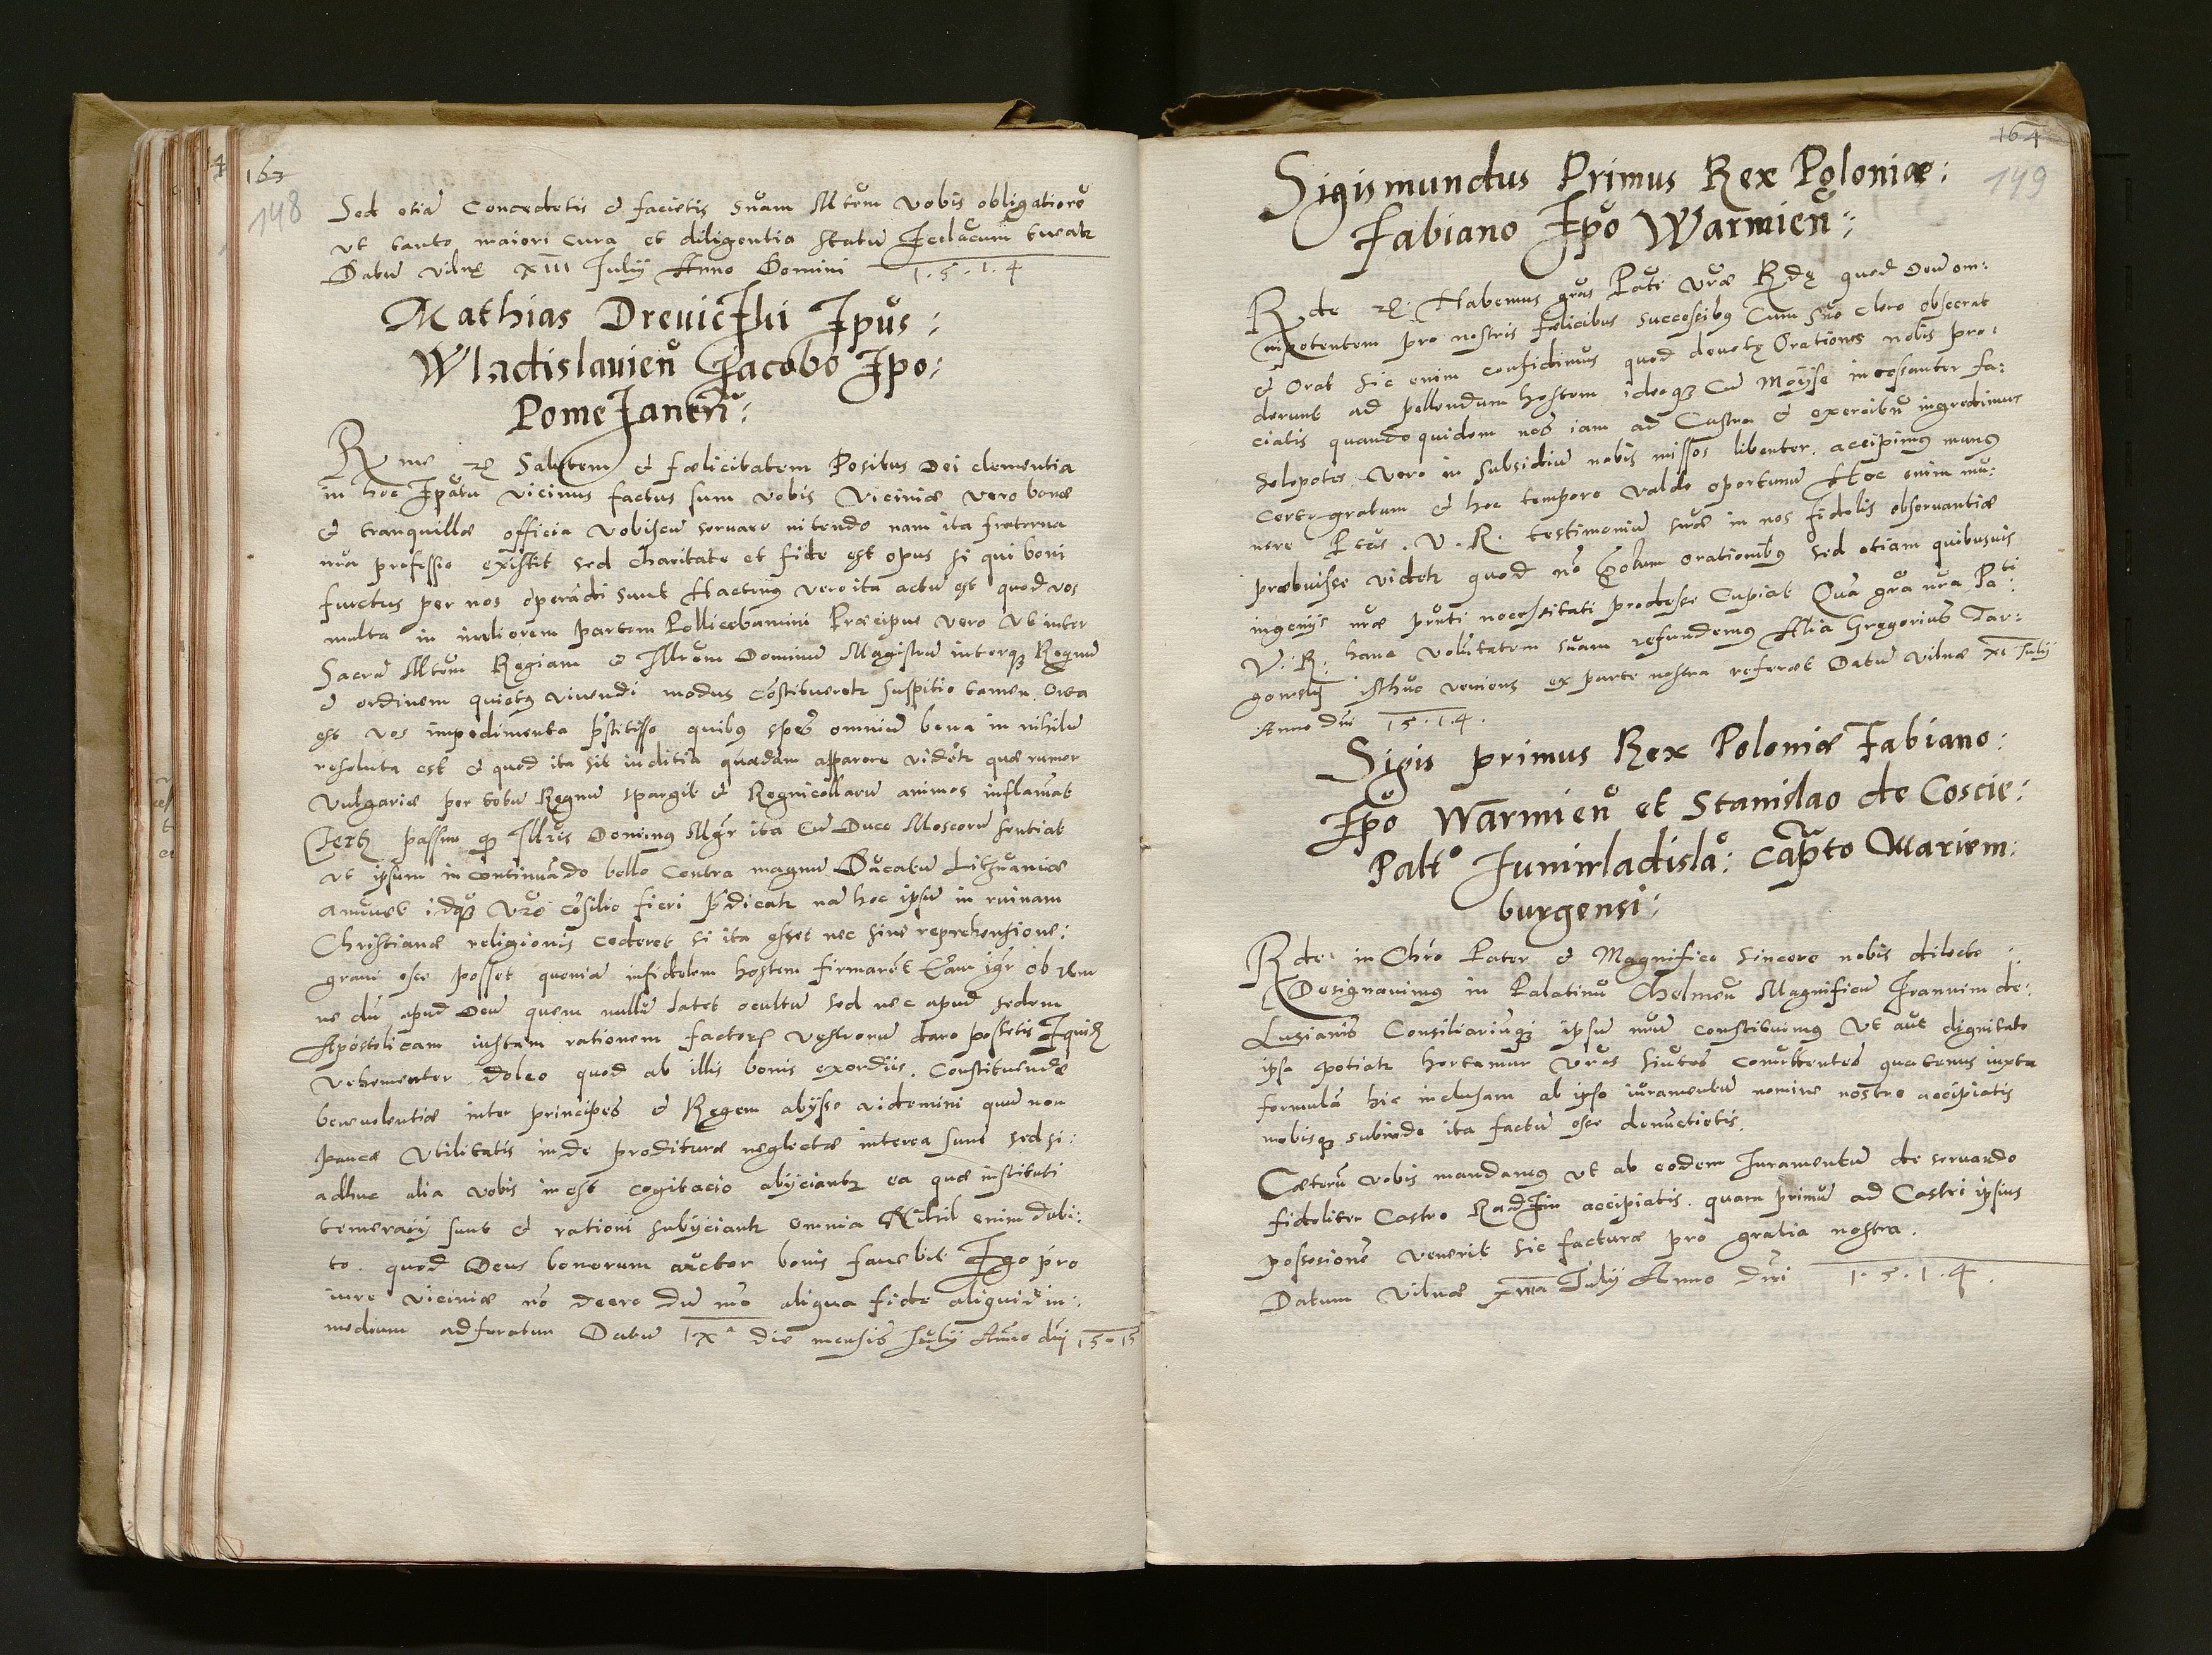 163
148
Sed etiā concedetis & facietis Suam Mtem vobis obligatiorē
vt tanto maiori cura et diligentia statū tueatr
Datū vilnę XIII Julij Anno Domini 1.5.1.4
Mathias Dreuicski Ipūs:
Wladislauien̄ Jacobo Ipo:
Pomesanen̄:
Rme Salutem & fœlicitatem Positus Dei clementia
in hoc Ipatu vicinus factus sum vobis Viciniæ vero bonæ
& tranquillæ officia vobiscū seruare nitendo nam ita fraterna
nr̄a professio existit sed charitate et fide est opus si qui boni
fructus per nos operādi sunt Hacten9 vero ita actū est quod vos
multa in meliorem partem Pollicebamini Præcipue vero Vt inter
Sacrā Mtem Regiam & Illrem Dominū Magistrū interq3 Regnū
& ordinem quiet9 viuendi modus cōstitueretr suspitio tamen orta
est vos impedimenta p̄stitisse quib9 spes omniū bona in nihilū
resoluta est & quod ita sit inditia quædam apparere vidētr quæ rumor
Vulgariæ per totū Regnū spargit & Regnicollarū animos inflamāt
passim Illris Domin9 Mgr̄ ita Cū Duce Moscorū sentiat
vt ipsum in continuādo bello contra magnū Ducatū Lithuaniæ
idq3 Vr̄o cōsilio fieri p̄dicatr nā hoc ipsū in ruinam
Christianæ religionis cederet si ita esset nec sine reprehensione:
graui esse posset quoniā infidelem hostem firmarēt ob rem
ne dū apud Deū quem nullū latet ocultū sed nec apud sedem
Apostolicam iustam rationem factorū vestrorum dare possetis
vehementer doleo quod ab illis bonis exordijs Constituendæ
beneuolentiæ inter principes & Regem abijsse videmini quū non
paucæ Vtilitatis inde prodituræ neglectæ interea sunt sed si:
adhuc alia vobis inest cogitacio abijciantr ea quæ instituti
temerarij sunt & rationi subijciantr omnia Nihil enim dubi:
to quod Deus bonorum auctor bonis fauebit Ego pro
iure viciniæ nō deero dū mō aliqua fide aliquid in:
medium adferatur Datū IXa die mensis Julij Anno dnj 15.15
164
149
Sigismundus Primus Rex Poloniæ:
Fabiano Ipo Warmien̄:
Rde Habemus gr̄as Pati Vr̄æ Rdę quod Deū om:
nipotentem pro nostris fœlicibus successib9 Cum suo clero obsecrat
& Orat sic enim confidimus quod deuotę Orationes nobis pro:
derunt ad pellendum hostem ideoq3 Cū Moyse incessanter fa:
ciatis quandoquidem nos iam ad Castra & exercitū ingredimur
Sclopetes vero in subsidiū nobis missos libenter accipim9 mun9
certe gratum & hoc tempore valde oportunū Hoc enim mu:
nere Ptas. V. R. testimoniū suæ in nos fidelis obseruantiæ
præbuisse videtr quod nō solum orationib9 sed etiam quibusuis
ingenijs nr̄æ pn̄ti necessitati prodesse Cupiat Qua gr̄a nr̄a Pati
V: R: hanc volūtatem suam refundem9 Alia Gregorius Tar:
gowskj isthuc veniens ex parte nostra referet Datū vilnæ XI Julij
Anno Dni 15.1.4.
Sigis primus Rex Poloniæ Fabiano:
Ipō Warmien̄ et Stanislao de Coscie:
Palto Juniwladislā: Capto Mariem:
burgensi:
Rde in Chro Pater & Magnifice Sincere nobis dilecte
Designauim9 in Palatinū Chelmen̄ Magnificū Joannem de:
Lusianis Consiliariūq3 ipsū nr̄um constituimus Vt aūt dignitate
ipsa potiatr hortamur vr̄as Siutes comittentes quatenus iuxta
formulā hic inclusam ab ipso iuramentū nomine nostro accipiatis
nobisq3 subinde ita factū esse denunctietis.
Cæterū vobis mandam9 vt ab eodem Juramentū de seruando
fideliter Castro Radzin accipiatis. quam primū ad Castri ipsius
possessionē venerit sic facturæ pro gratia nostra.
Datum Vilnæ Julij Anno Dni 1.5.1.4.